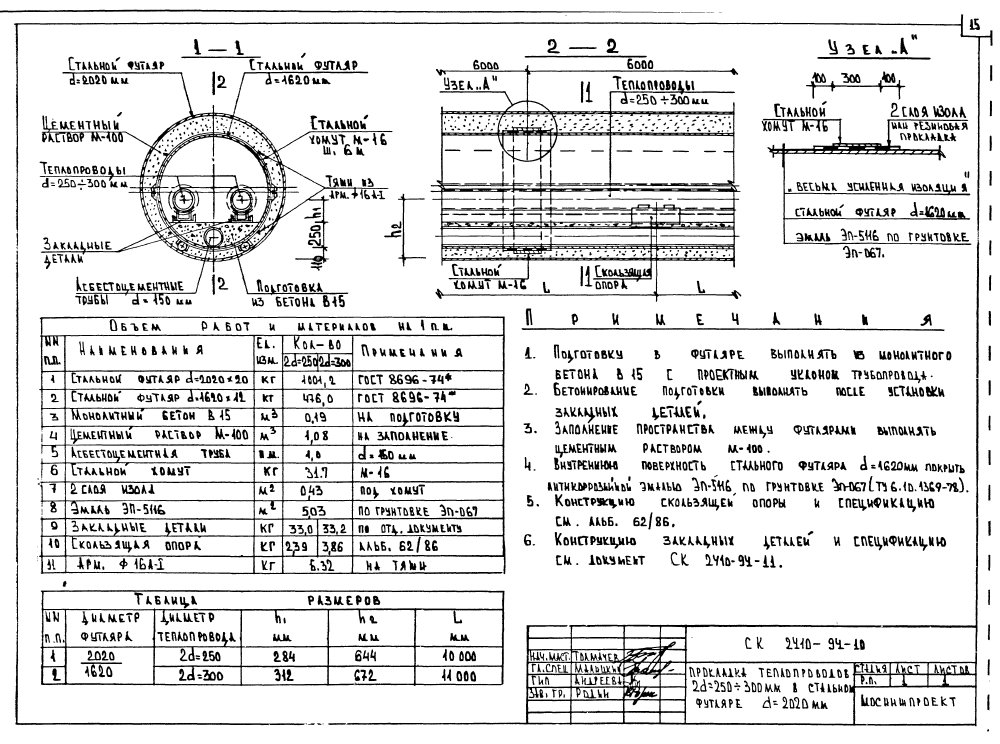 15
1 — 1
Стальной футляр
d=2020мм
Стальной футляр
d=1620мм
2
Цементный
раствор М-100
Стальной
хомут М-16
ш. 6 м
Теплопроводы
d=250÷300мм
Тяжи из
арм. ф16А-I
h1
250
110
Закладные
детали
Асбестоцементные
трубы d=150 мм
2
Подготовка
из бетона В15
2 — 2
6000
6000
Узел „А"
1
Теплопроводы
d=250÷300мм
h2
Стальной
хомут М-16
1
Скользящая
опора
L
L
Узел „А"
100 300 100
Стальной
хомут М-16
2 слоя изола
или резиновая
прокладка
„Весьма усиленная изоляция"
Стальной футляр d=1620мм
Эмаль Эп-5116 по грунтовке
Эп-067.
Объем работ и материалов на 1 п.м.
NN п.п. Наименования Ед. изм. Кол-во 2d=250 2d=300 Примечания
1 Стальной футляр d=2020×20 кг 1001,2 ГОСТ 8696-74*
2 Стальной футляр d=1620×12 кг 476,0 ГОСТ 8696-74*
3 Монолитный бетон В15 м³ 0,19 на подготовку
4 Цементный раствор М-100 м³ 1,08 на заполнение
5 Асбестоцементная труба п.м. 1,0 d=150мм
6 Стальной хомут кг 31.7 М-16
7 2 слоя изола м² 0,43 под хомут
8 Эмаль ЭП-5116 м² 5,03 по грунтовке Эп-067
9 Закладные детали кг 33,0 33,2 по отд. документу
10 Скользящая опора кг 2,39 3,86 альб. 62/86
11 Арм. Ф 16А-I кг 6.32 на тяжи
Таблица размеров
NN п.п. Диаметр футляра Диаметр теплопровода h1 мм h2 мм L мм
1 2020 2d=250 284 644 10 000
2 1620 2d=300 312 672 11 000
Примечания
1. Подготовку в футляре выполнять из монолитного
бетона В 15 с проектным уклоном трубопровода.
2. Бетонирование подготовки выполнять после установки
закладных деталей.
3. Заполнение пространства между футлярами выполнять
цементным раствором М-100.
4. Внутреннюю поверхность стального футляра d=1620мм покрыть
антикоррозийной эмалью Эп-5116 по грунтовке Эп-067 (ТУ 6.10.1369-78).
5. Конструкцию скользящей опоры и спецификацию
см. альб. 62/86.
6. Конструкцию закладных деталей и спецификацию
см. документ СК 2410-94-11.
СК 2410-94-10
Нач. маст. Толмачев
Гл. спец. Малышкин
ГИП Андреева
Зав. гр. Родин
Прокладка теплопроводов
2d=250÷300мм в стальном
футляре d=2020мм
Стадия Лист Листов
Р.П. 1 1
Мосинжпроект